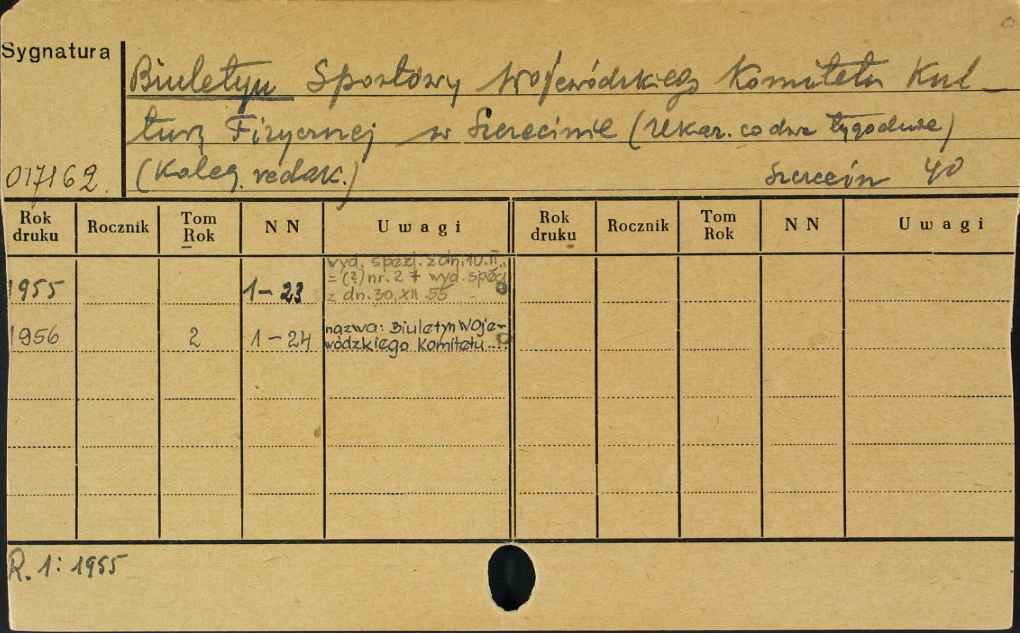 Sygnatura
Biuletyn Sportowy Wojewódzkiego Komitetu Kul-
tury Fizycznej w Szczecinie (Ukaz. co dwa tygodnie)
017162. (Koleg. redak.) Szczecin 40
Rok druku Rocznik Tom Rok N N Uwagi Rok druku Rocznik Tom Rok N N Uwagi
wyd. specj. z dn. 10.II.,
1955 1-23 = (?) nr. 2 + wyd. specj
z dn. 30.XII 55
nazwa: Biuletyn Woje-
1956 2 1-24 wódzkiego Komitetu...
R. 1: 1955